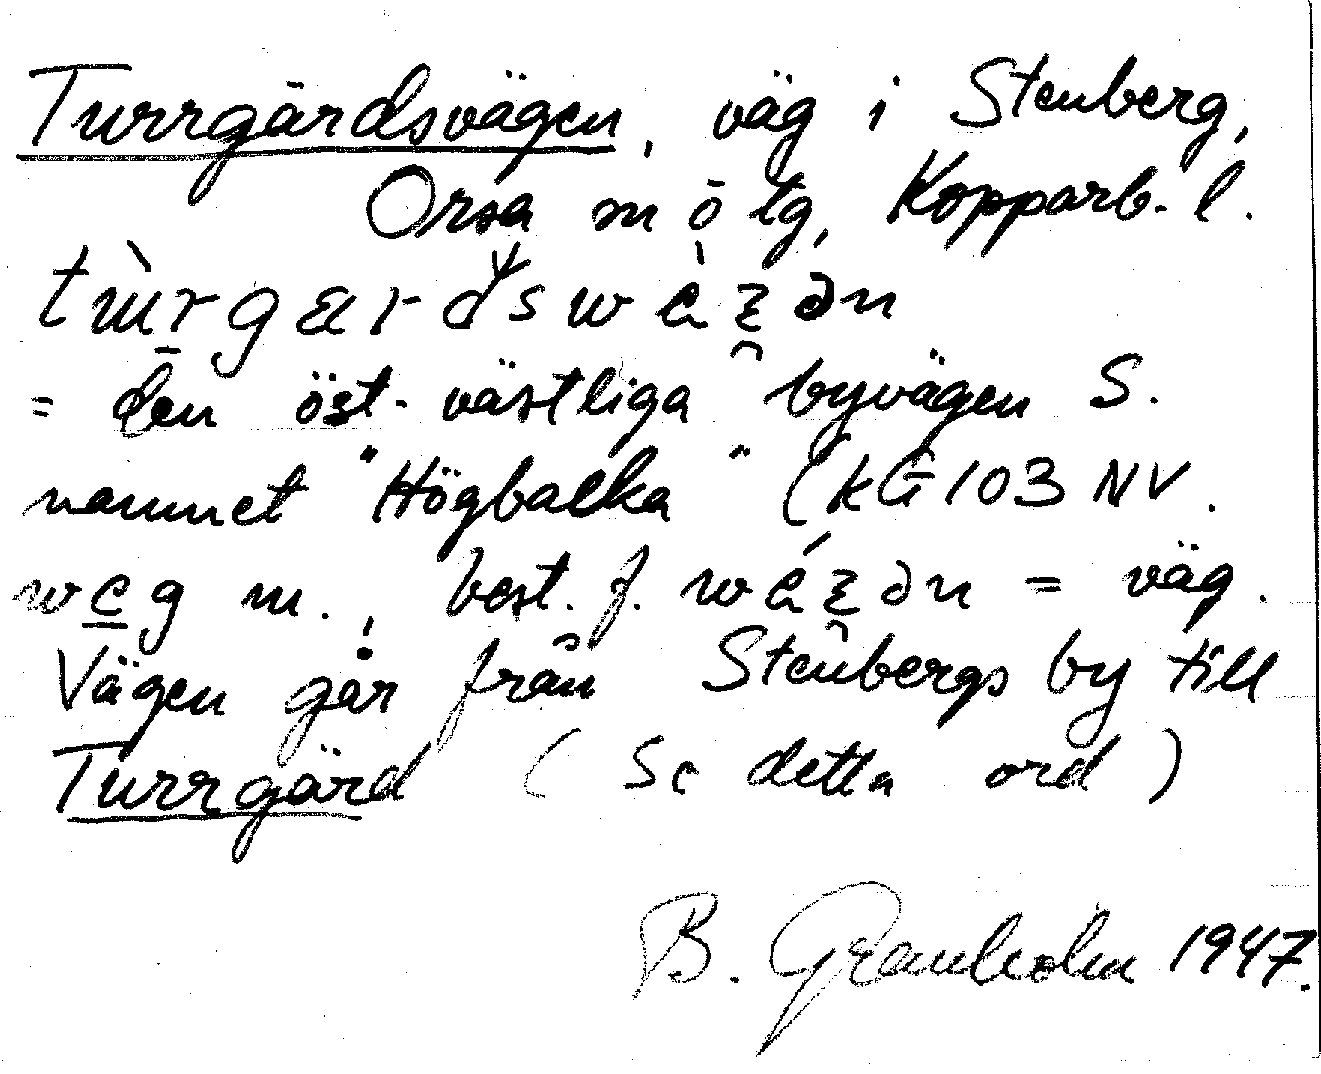 Turrgärdsvägen, väg i Stenberg,
Orsa m ō tg, Kopparb. l.
= den öst-västliga byvägen S.
namnet "Högbalka" (kG103 NV.
m., best. f. = väg.
Vägen går från Stenbergs by till
Turrgärd (Se detta ord)
B. Granholm 1947.